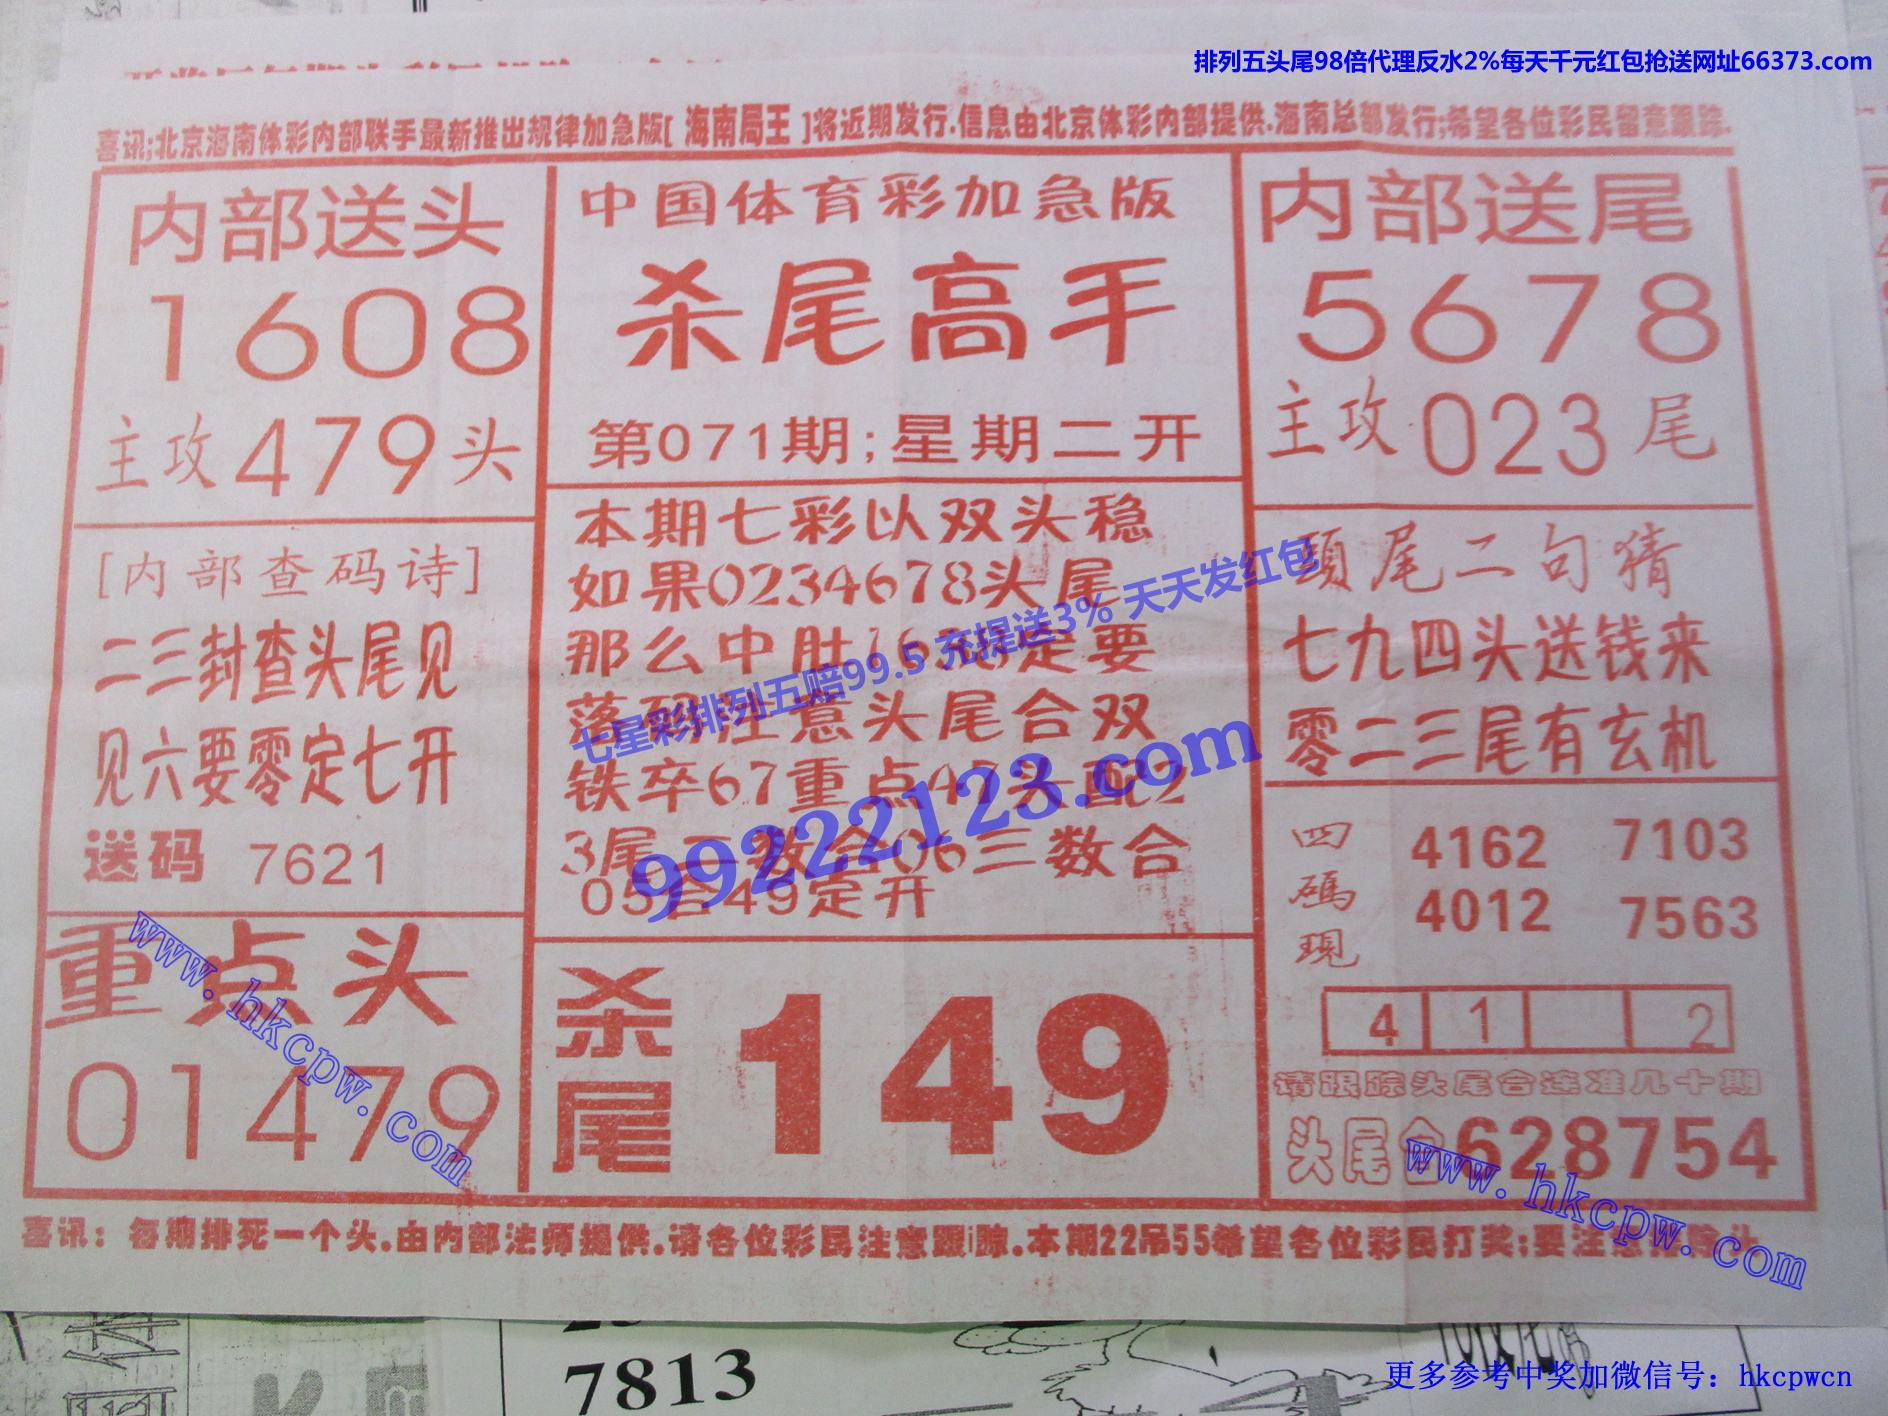 排列五头尾98倍代理反水2%每天千元红包抢送网址66373.com
喜讯;北京海南体彩内部联手最新推出规律加急版[ 海南局王 ]将近期发行.信息由北京体彩内部提供.海南总部发行;希望各位彩民留意跟踪.
内部送头
1608
主攻479头
中国体育彩加急版
杀尾高手
第071期;星期二开
内部送尾
5678
主攻023尾
[内部查码诗]
二三封查头尾见
见六要零定七开
送码 7621
本期七彩以双头稳
如果0234678头尾
那么中肚 定要
落码注意头尾合双
铁卒67重点479头配2
3尾 二数合06三数合
05合49定开
頭尾二句猜
七九四头送钱来
零二三尾有玄机
四碼現
4162 7103
4012 7563
4 1 2
请跟踪头尾合连准几十期
头尾合628754
重点头
01479
杀尾 149
喜讯：每期排死一个头.由内部法师提供.请各位彩民注意跟踪.本期22吊55希望各位彩民打奖;要注意
七星彩排列五赔99.5 充提送3% 天天发红包
99222123.com
www.hkcpw.com
www.hkcpw.com
7813
更多参考中奖加微信号：hkcpwcn